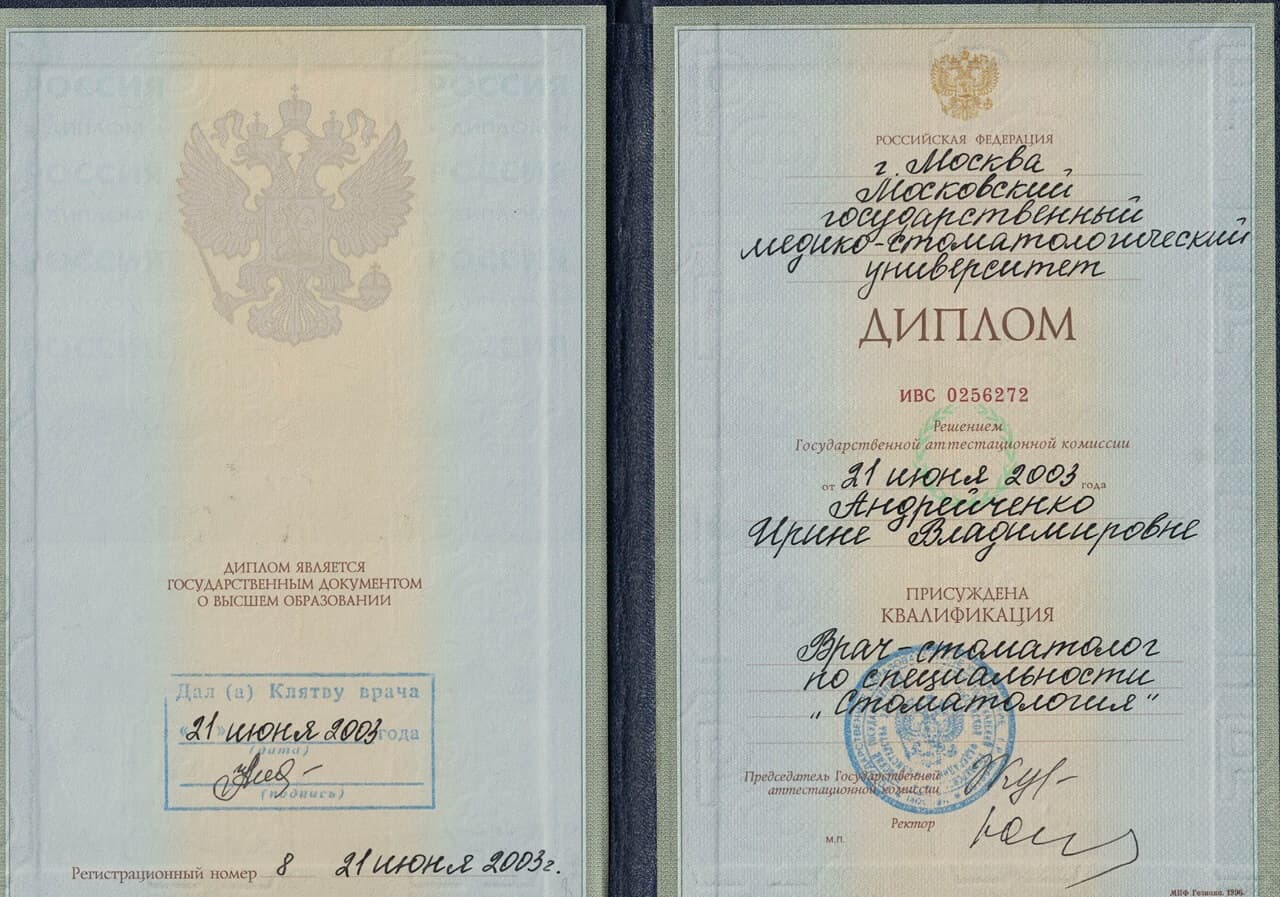 РОССИЯ РОССИЯ
РОССИЯ РОССИЯ
РОССИЯ РОССИЯ
РОССИЯ РОССИЯ
ДИПЛОМ ЯВЛЯЕТСЯ
ГОСУДАРСТВЕННЫМ ДОКУМЕНТОМ
О ВЫСШЕМ ОБРАЗОВАНИИ
Дал (а) Клятву врача
"21" июня 2003 года
(дата)
(подпись)
Регистрационный номер 8 21 июня 2003г.
РОССИЙСКАЯ ФЕДЕРАЦИЯ
г. Москва
Московский
государственный
медико-стоматологический
университет
ДИПЛОМ
ИВС 0256272
Решением
Государственной аттестационной комиссии
от 21 июня 2003 года
Андрейченко
Ирине Владимировне
ПРИСУЖДЕНА
КВАЛИФИКАЦИЯ
Врач-стоматолог
по специальности
„Стоматология"
Председатель Государственной
аттестационной комиссии
Ректор
М.П.
МПФ Гознака. 1996.